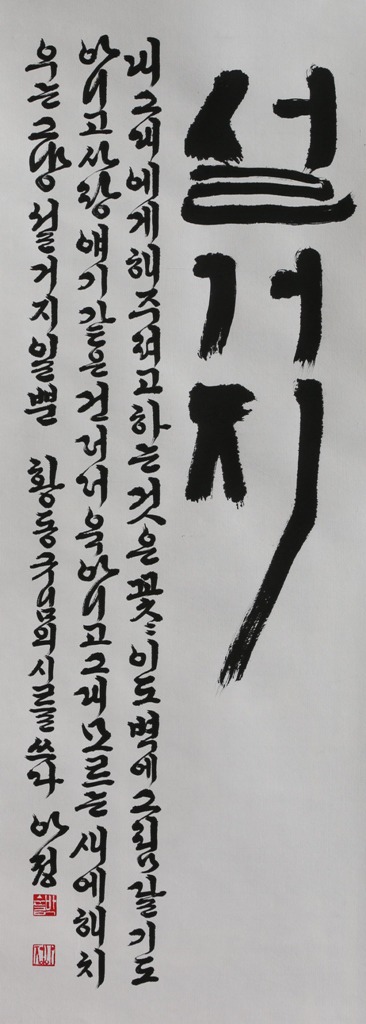 설거지
내 그대에게 해주려고 하는 것은 꽃〻이도 벽에 그림 달기도
아니고 사랑 얘기 같은 건 더더욱 아니고 그대 모르는 새에 해치
우는 그냥 설거지일 뿐 황동규님의 시를 쓰다